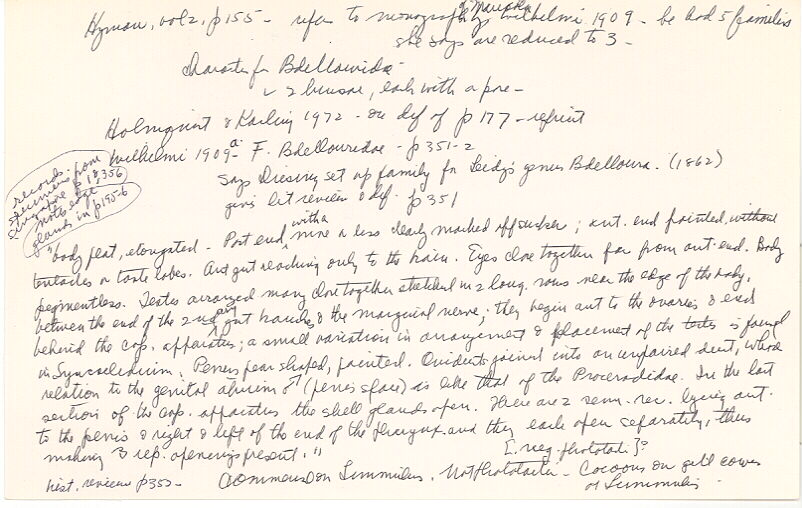 Hyman, vol 2, p 155 - refer to monograph of Maricola by Wilhelmi 1909 - he had 5 families
she says are reduced to 3 -
Character for Bdellouridae
2 bursae, each with a pore -
Holmquist & Karling 1972 - on def of p 177 - reprint
Wilhelmi 1909a - F. Bdellouridae - p 351-2
says Diesing set up family for Leidy's genus Bdelloura. (1862)
gives lit review & def. p 351
records specimens from Singapore p 18, 356
note edge glands in p 195-6
"body flat, elongated. Post end, with a more or less clearly marked off sucker; ant. end pointed, without
tentacles or taste lobes. Ant gut reaching only to the brain. Eyes close together far from ant. end. Body
pigmentless. Testes arranged many close together stretched in 2 long. rows near the edge of the body,
between the end of the 2nd ary gut branches & the marginal nerve; they begin ant to the ovaries & end
behind the cop. apparatus; a small variation in arrangement & placement of the testes is found
in Syncoelidium. Penis pear shaped, pointed. Oviducts joined into an unpaired duct, whose
relation to the genital atrium ♂ (penis space) is like that of the Procerodidae. In the last
section of the cop. apparatus the shell glands open. There are 2 sem. rec. lying ant.
to the penis & right & left of the end of the pharynx and they each open separately, thus
making 3 rep. openings present."
[neg. phototati]?
hist. review p 352 - Commensal on Limulus. Not phototactic - Cocoons on gill covers
of Limulus -